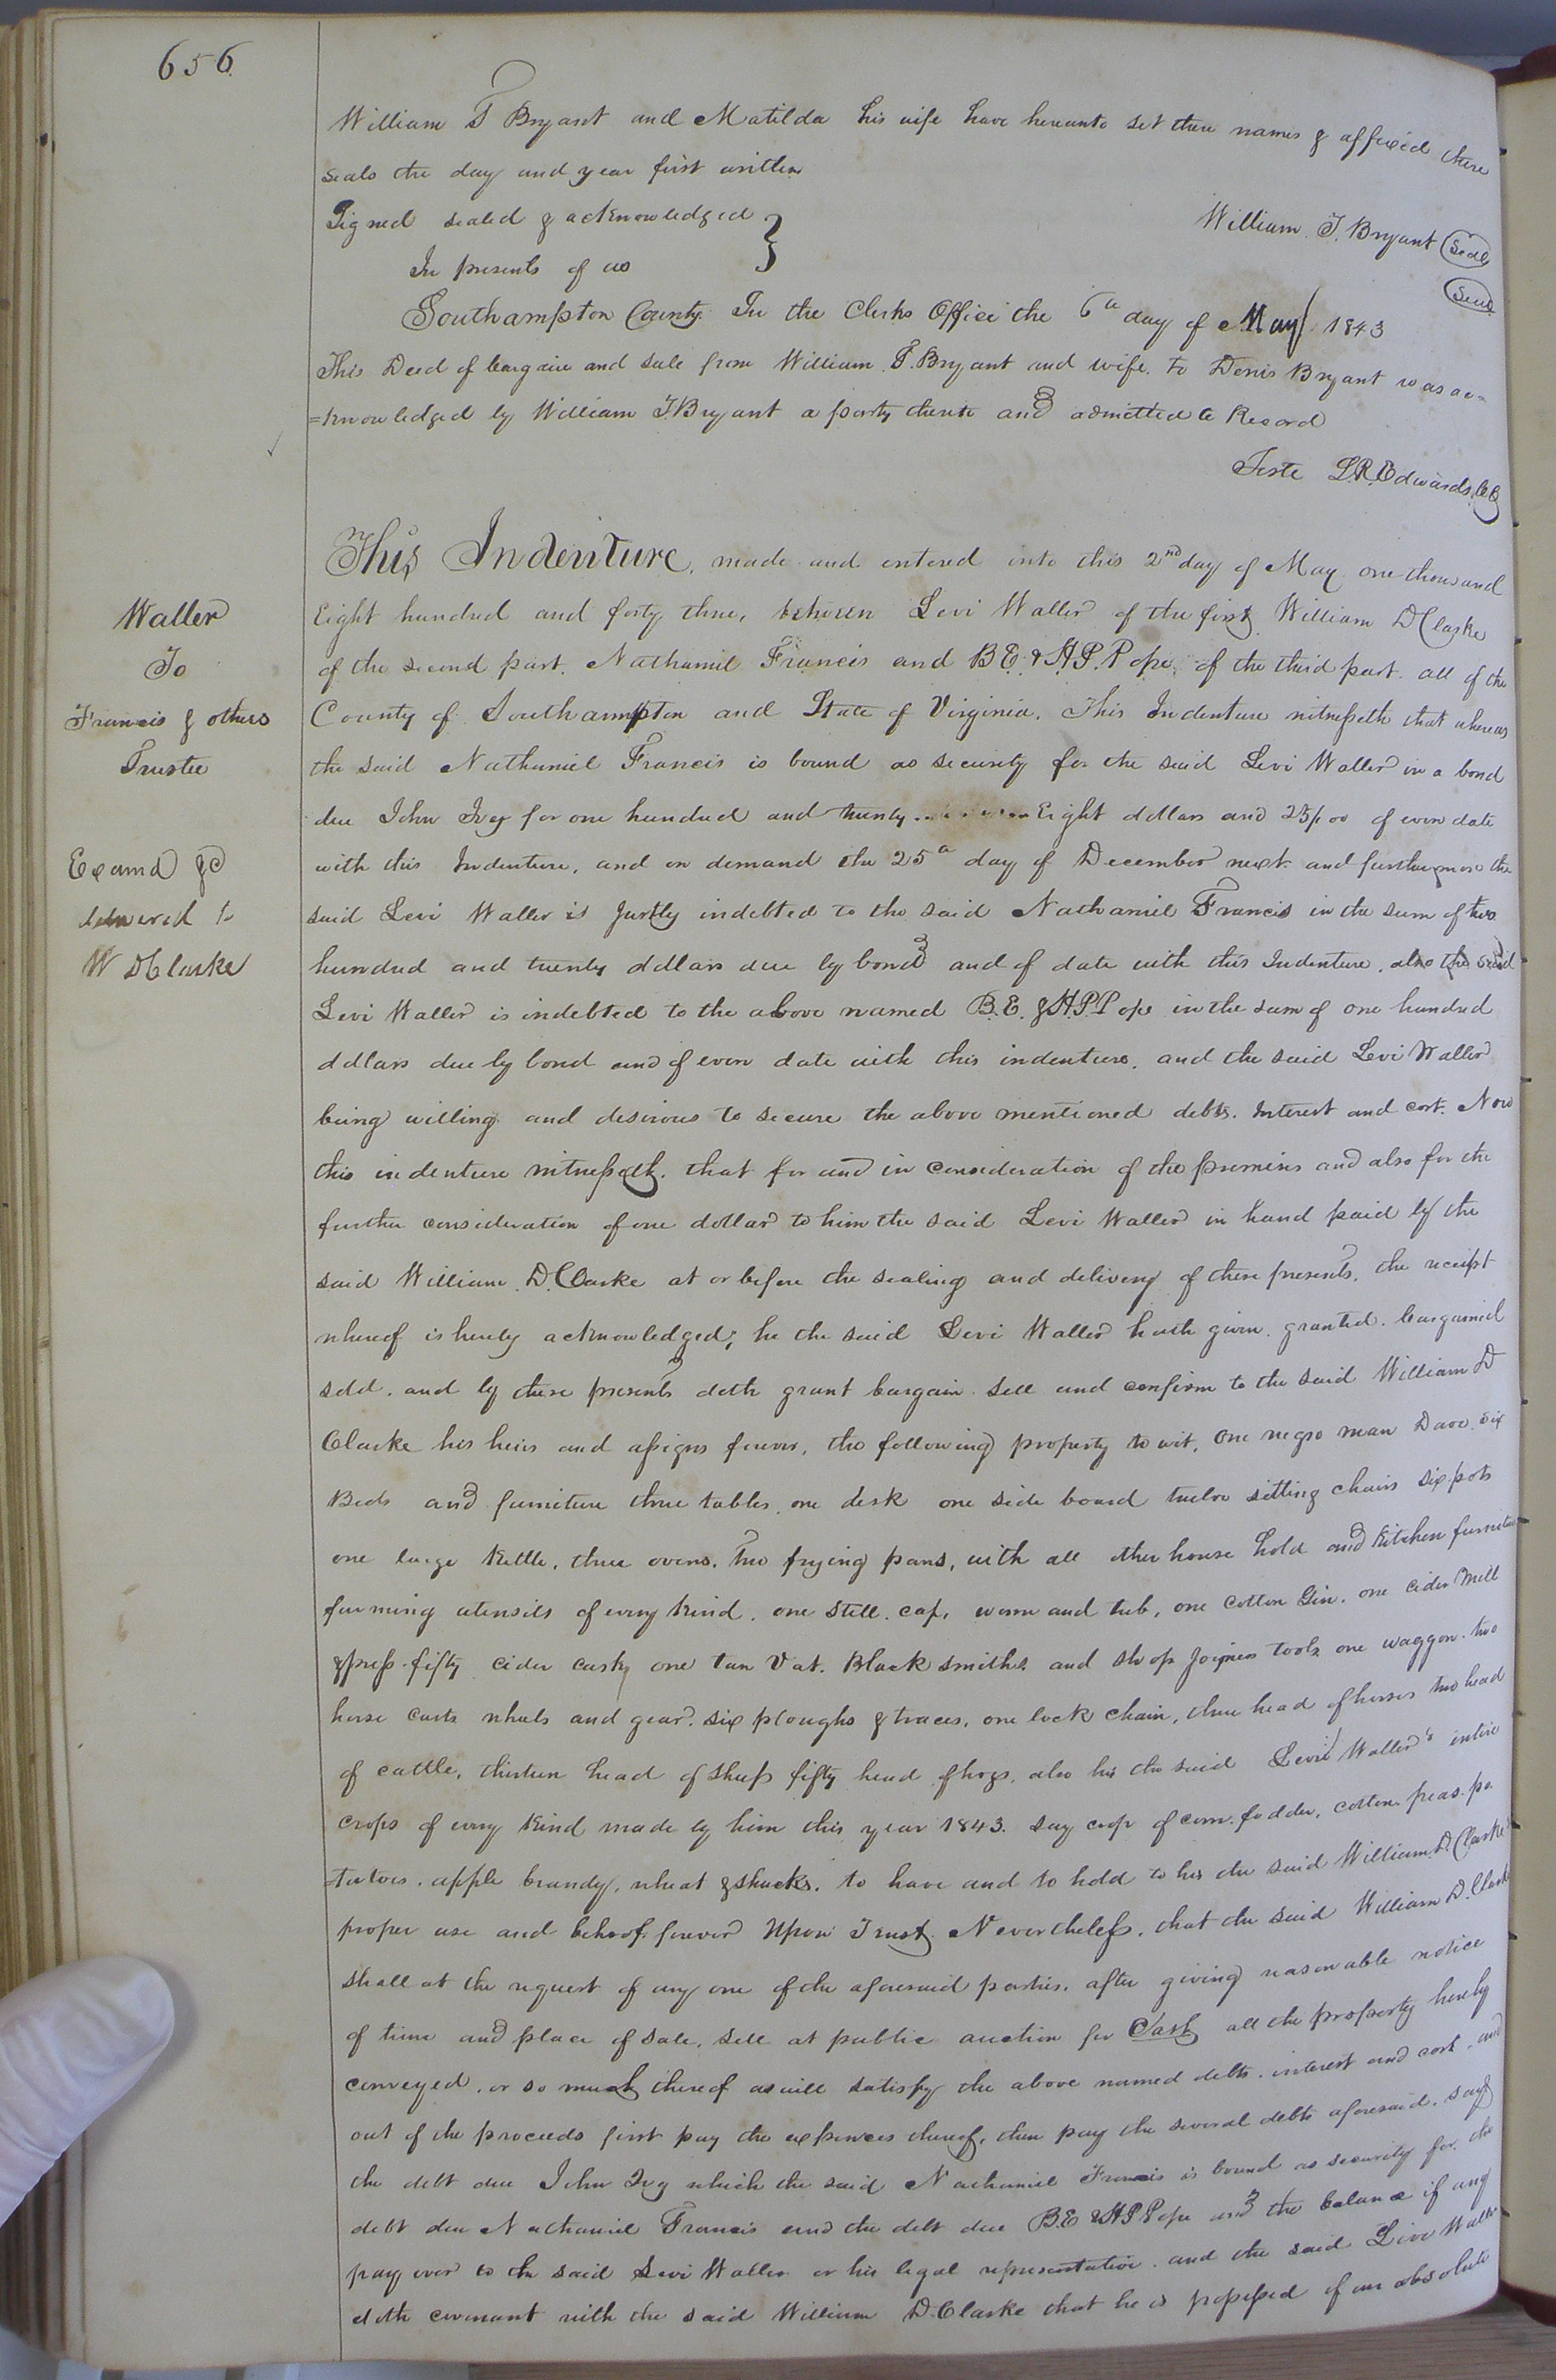 656
William T Bryant and Matilda his wife have hereunto set there names & affixed there
seals the day and year first written
Signed sealed & acknowledged }
In presents of us
William T. Bryant (Seal)
(Seal)
Southampton County. In the Clerks Office the 6th day of May 1843
This Deed of bargain and sale from William T. Bryant and wife to Denis Bryant was ac=
=knowledged by William T. Bryant a party thereto and admitted to Record
Teste L.R. Edwards, CC
Waller
To
Francis & others
Trustee
Examd &c
delivered to
W D Clarke
This Indenture, made and entered into this 2nd day of May one thousand
Eight hundred and forty three, between Levi Waller of the first William D Clarke
of the second part. Nathaniel Francis and B.E. & H.P. Pope of the third part. all of the
County of Southampton and State of Virginia. This Indenture witnesseth that whereas
the said Nathaniel Francis is bound as security for the said Levi Waller in a bond
due John Ivy for one hundred and twenty Eight dollars and 25/00 of even date
with this Indenture, and on demand the 25th day of December next and furthermore the
said Levi Waller is Justly indebted to the said Nathaniel Francis in the sum of two
hundred and twenty dollars due by bond and of date with this Indenture, also the said
Levi Waller is indebted to the above named B.E. & H.P. Pope in the sum of one hundred
dollars due by bond and of even date with this indenture. and the said Levi Waller
being willing and desirous to secure the above mentioned debts. Interest and cost. Now
this indenture witnesseth. that for and in consideration of the premises and also for the
further consideration of one dollar to him the said Levi Waller in hand paid by the
said William D. Clarke at or before the sealing and delivery of these presents, the receipt
whereof is hereby acknowledged; he the said Levi Waller hath given. granted. bargained
sold. and by these presents doth grant bargain sell and confirm to the said William D
Clarke his heirs and assigns forever, the following property to wit, One negro man Dave, six
Beds and furniture three tables, one desk one side board twelve sitting chairs six pots
one large Kettle, three ovens. Two frying pans, with all other house hold and Kitchen furniture
farming utensils of every Kind. one Still. cap, worm and tub, one Cotton Gin. one cider Mill
& press. fifty cider casks one tan Vat. Black smiths and shop Joiners tools one waggon. two
horse carts wheels and gear. six ploughs & traces, one lock chain, three head of horses two head
of cattle, thirteen head of sheep fifty head of hogs, also his the said Levi Waller's entire
crops of every Kind made by him this year 1843. say crop of corn. fodder, cotton. peas. po
=tatoes. apple brandy, wheat & shucks. to have and to hold to his the said William D. Clarke's
proper use and behoof forever Upon Trust Nevertheless. that the said William D. Clarke
shall at the request of any one of the aforesaid parties. after giving reasonable notice
of time and place of sale, sell at public auction for Cash all the property hereby
conveyed, or so much thereof as will satisfy the above named debts. interest and cost. and
out of the proceeds first pay the expences thereof, then pay the several debts aforesaid. say
the debt due John Ivy which the said Nathaniel Francis is bound as security for. the
debt due Nathaniel Francis and the debt due B.E & H.P. Pope and the balance if any
pay over to the said Levi Waller or his legal representative. and the said Levi Waller
doth covenant with the said William D. Clarke that he is possessed of an absolute